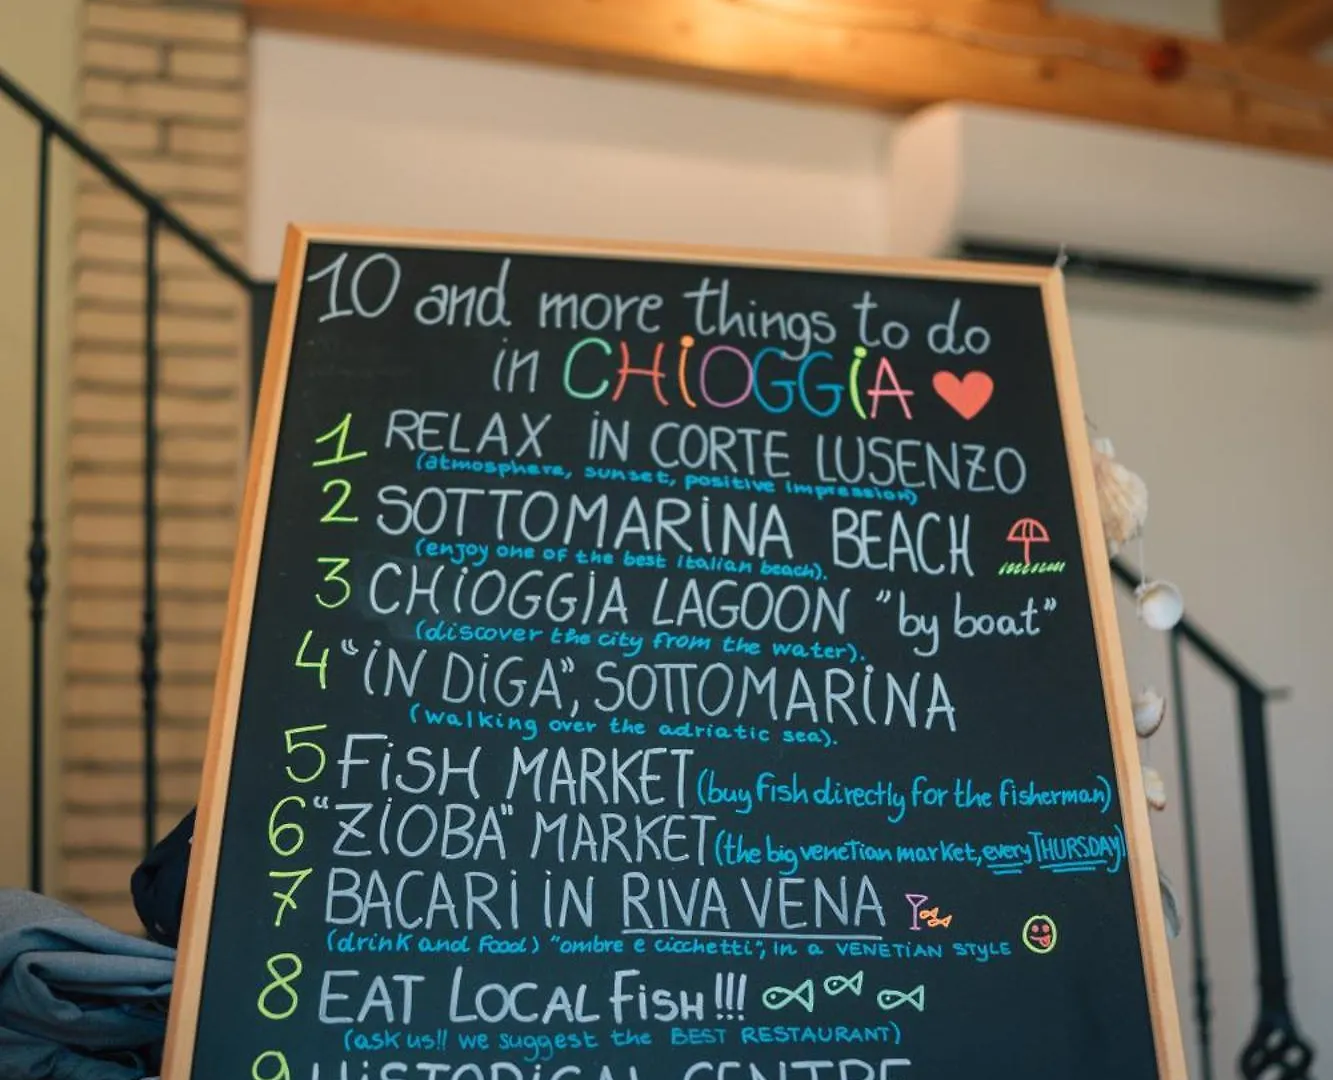 10 and more things to do
in CHiOGGiA
1 RELAX iN CORTE LUSENZO
(atmosphere, sunset, positive impression)
2 SOTTOMARiNA BEACH
(enjoy one of the best italian beach).
3 CHiOGGiA LAGOON "by boat"
(discover the city from the water).
4 "iN DiGA", SOTTOMARiNA
(walking over the adriatic sea).
5 FiSH MARKET (buy fish directly for the fisherman)
6 "ZiOBA" MARKET (the big venetian market, every THURSDAY)
7 BACARi iN RIVA VENA
(drink and food) "ombre e cicchetti", in a VENETIAN STYLE
8 EAT LOCAL FiSH!!!
(ask us!! we suggest the BEST RESTAURANT)
9 HiSTORiCAL CENTRE